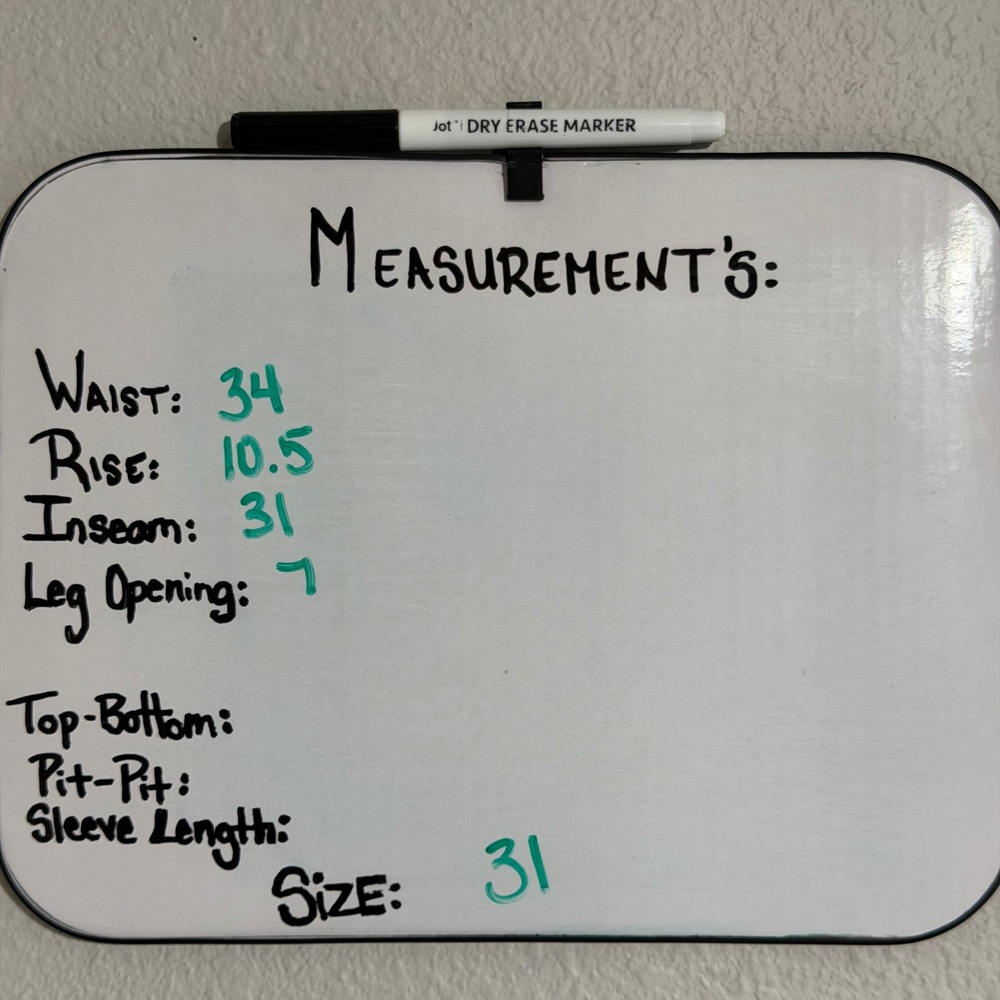 Jot™ DRY ERASE MARKER
MEASUREMENT'S:
WAIST: 34
RISE: 10.5
Inseam: 31
Leg Opening: 7
Top-Bottom:
Pit-Pit:
Sleeve Length:
SiZE: 31